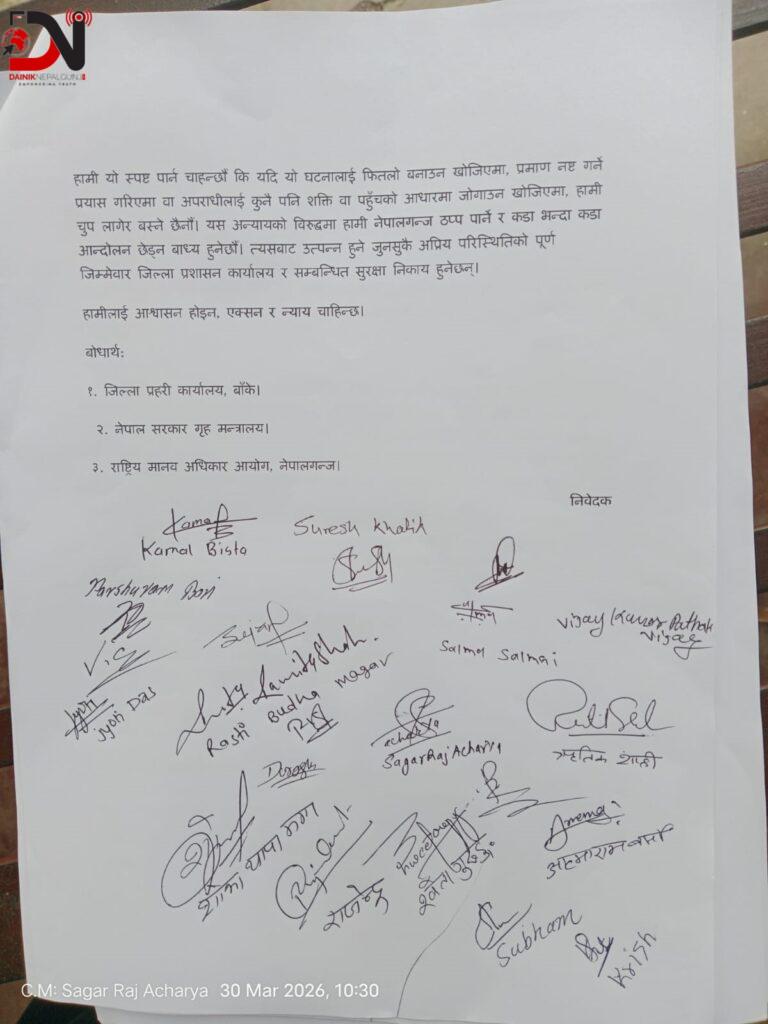 DN
DAINIKNEPALGUNJ
EMPOWERING TRUTH
हामी यो स्पष्ट पार्न चाहन्छौं कि यदि यो घटनालाई फितलो बनाउन खोजिएमा, प्रमाण नष्ट गर्ने
प्रयास गरिएमा वा अपराधीलाई कुनै पनि शक्ति वा पहुँचको आधारमा जोगाउन खोजिएमा, हामी
चुप लागेर बस्ने छैनौं। यस अन्यायको विरुद्धमा हामी नेपालगन्ज ठप्प पार्ने र कडा भन्दा कडा
आन्दोलन छेड्न बाध्य हुनेछौं। त्यसबाट उत्पन्न हुने जुनसुकै अप्रिय परिस्थितिको पूर्ण
जिम्मेवार जिल्ला प्रशासन कार्यालय र सम्बन्धित सुरक्षा निकाय हुनेछन्।
हामीलाई आश्वासन होइन, एक्सन र न्याय चाहिन्छ।
बोधार्थ:
१. जिल्ला प्रहरी कार्यालय, बाँके।
२. नेपाल सरकार गृह मन्त्रालय।
३. राष्ट्रिय मानव अधिकार आयोग, नेपालगन्ज।
निवेदक
Kamal
Kamal Bista
Suresh Khatik
Vijay Kumar Pathak
Vijay
Salma Salmai
Jyoti Das
Budha magar
Sagar Raj Acharya
शोभा थापा मगर
राजेन्द्र
Subham
Krish
C.M: Sagar Raj Acharya 30 Mar 2026, 10:30